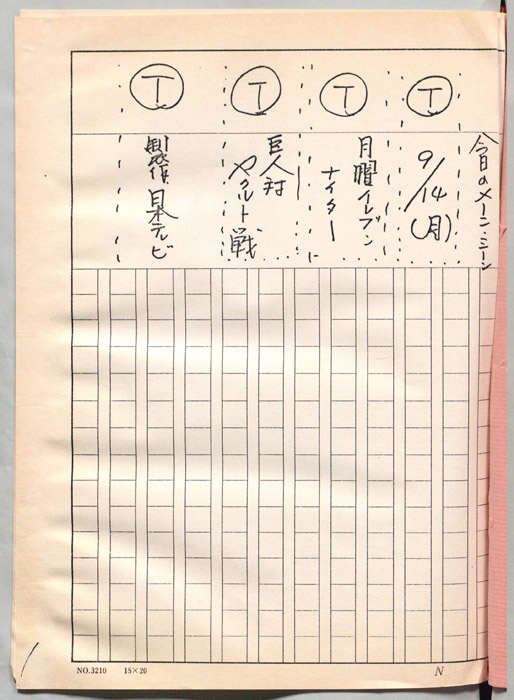 今日のメーン・シーン
T
9/14(月)
T
月曜イレブン
ナイター
T
巨人対
ヤクルト戦
T
制作 日本テレビ
NO.3210 15×20
N